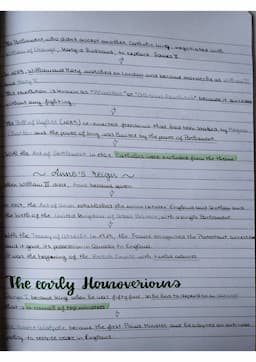 The Parliament who didn't accept another Catholic king, negotiated with
William of Orange, Mary's husband, to replace James II.
In 1689, William and Mary marched on London and became monarchs as William III
and Mary II.
This revolution is known as "Bloodless" or "Glorious Revolution" because it succeeded
without any fighting.
The Bill of Rights (1689)
and the power of king was limited by the power of Parliament.
With the Act of Settlement in 1701, Catholics were excluded from the throne.
~ Anne's reign ~
When William III died, Anne became queen.
In 1707, the Act of Union established the union between England and Scotland and
the birth of the United Kingdom of Great Britain, with a single Parliament.
With the Treaty of Utrecht in 1713, the France recognised the Protestant succession
and it gave its possession in Canada to England.
It was the beginning of the British Empire with twelve colonies.
The early Hanoverians
George I became king when he was fifty-four, so he had to depend on
council of top ministers
Robert Walpole became the first Prime Minister and he adopted an anti-war
policy to restore order in England.